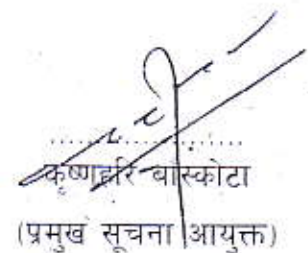 ....................
कृष्णहरि बास्कोटा
(प्रमुख सूचना आयुक्त)